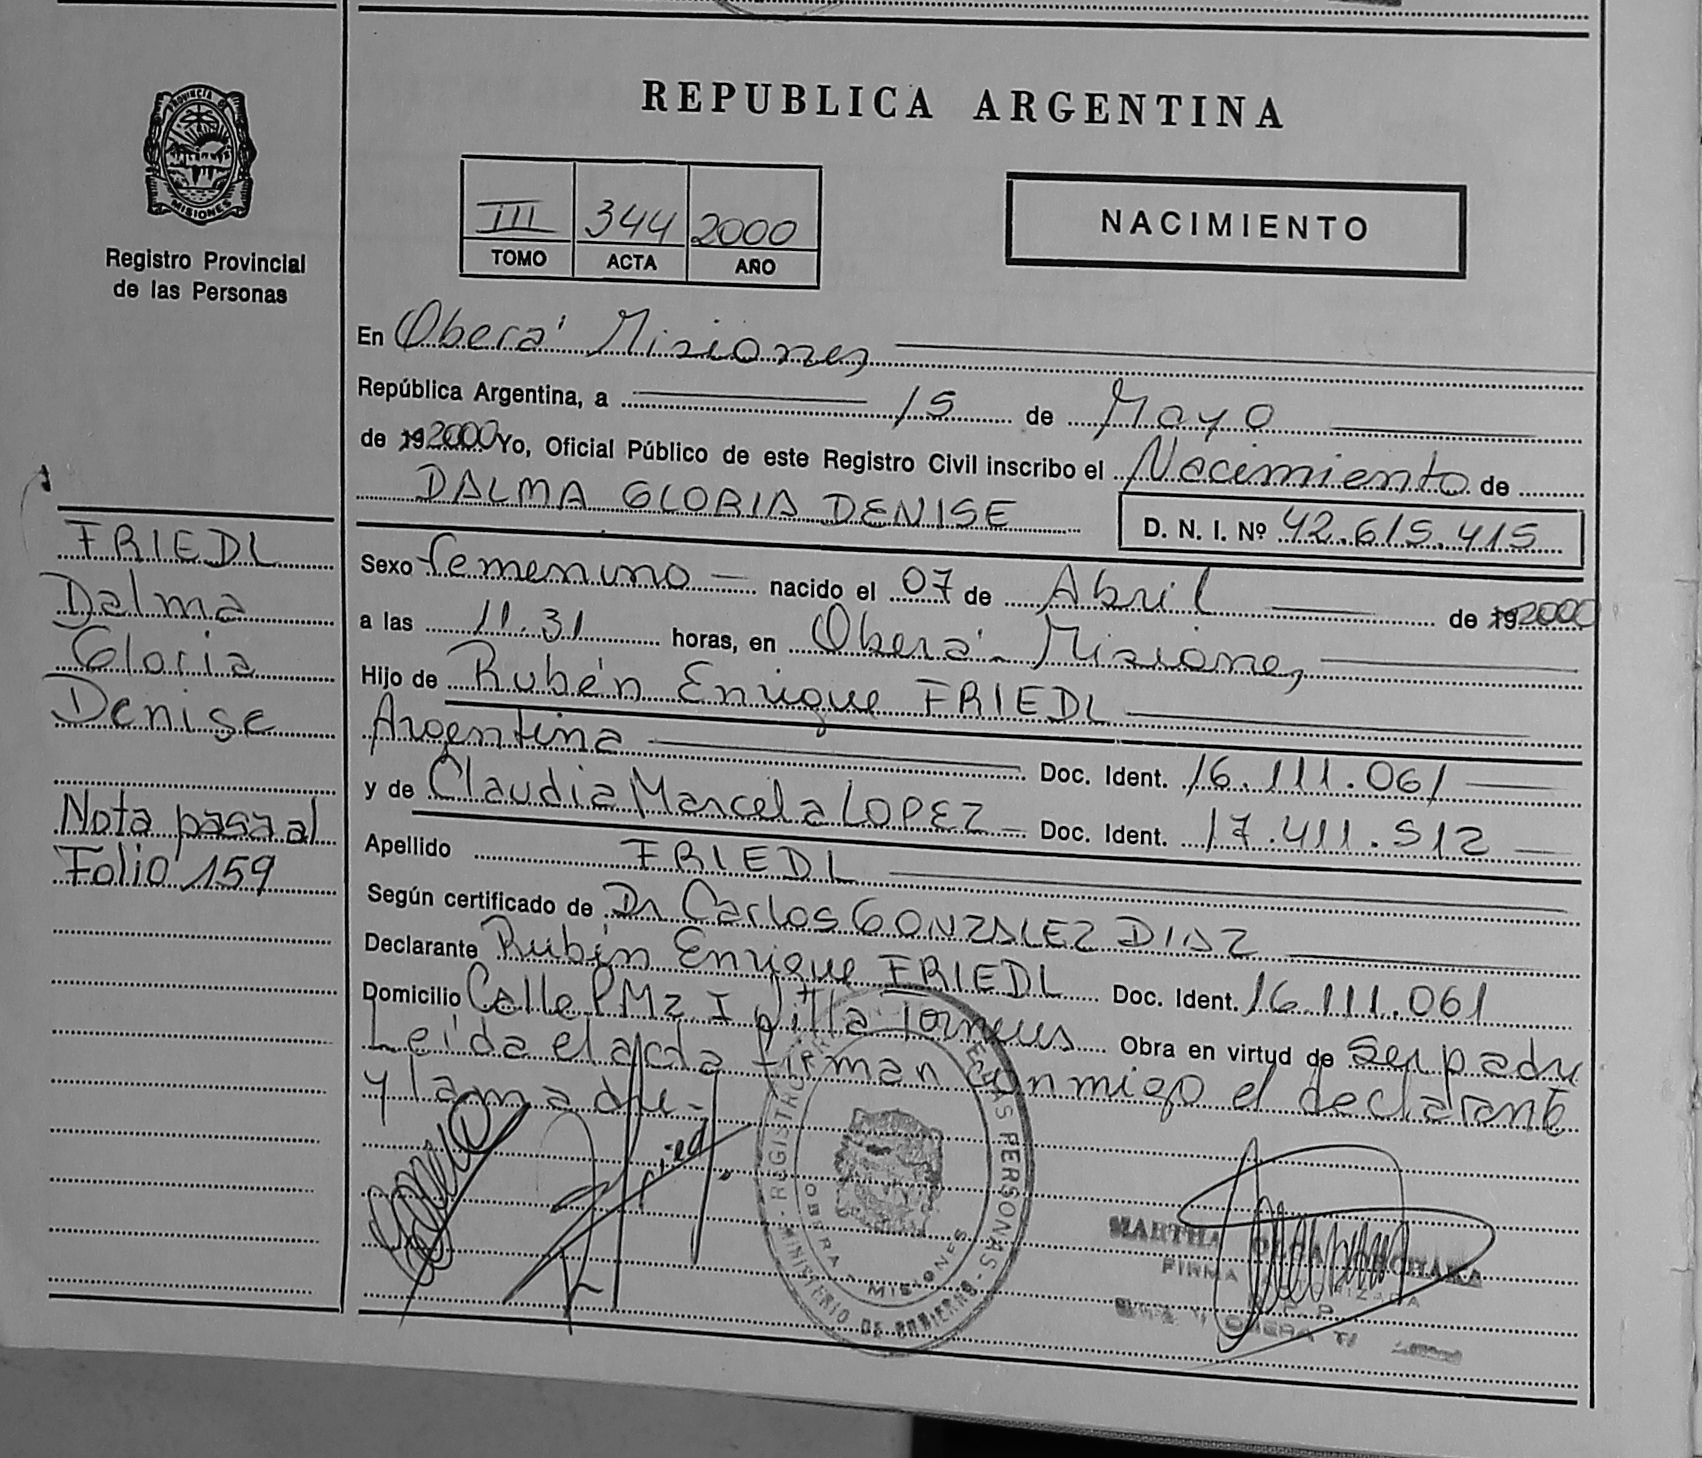 REPUBLICA ARGENTINA
PROVINCIA DE
MISIONES
Registro Provincial
de las Personas
III 344 2000
TOMO ACTA AÑO
NACIMIENTO
En Oberá Misiones
República Argentina, a 15 de Mayo
de 192000 Yo, Oficial Público de este Registro Civil inscribo el Nacimiento de
DALMA GLORIA DENISE D. N. I. Nº 42.615.415
Sexo femenino nacido el 07 de Abril de 192000
a las 11.31 horas, en Oberá Misiones
Hijo de Rubén Enrique FRIEDL
Argentina Doc. Ident. 16.111.061
y de Claudia Marcela LOPEZ Doc. Ident. 17.411.512
Apellido FRIEDL
Según certificado de Dr Carlos GONZALEZ DIAZ
Declarante Rubén Enrique FRIEDL Doc. Ident. 16.111.061
Domicilio Calle PMz I Villa Obra en virtud de ser padre
Leida el acta firman conmigo el declarante
y la madre-
FRIEDL
Dalma
Gloria
Denise
Nota pasa al
Folio 159
REGISTRO PERSONAS
OBERA - MISIONES
MINISTERIO DE GOBIERNO
MARTHA
FIRMA
OBERA